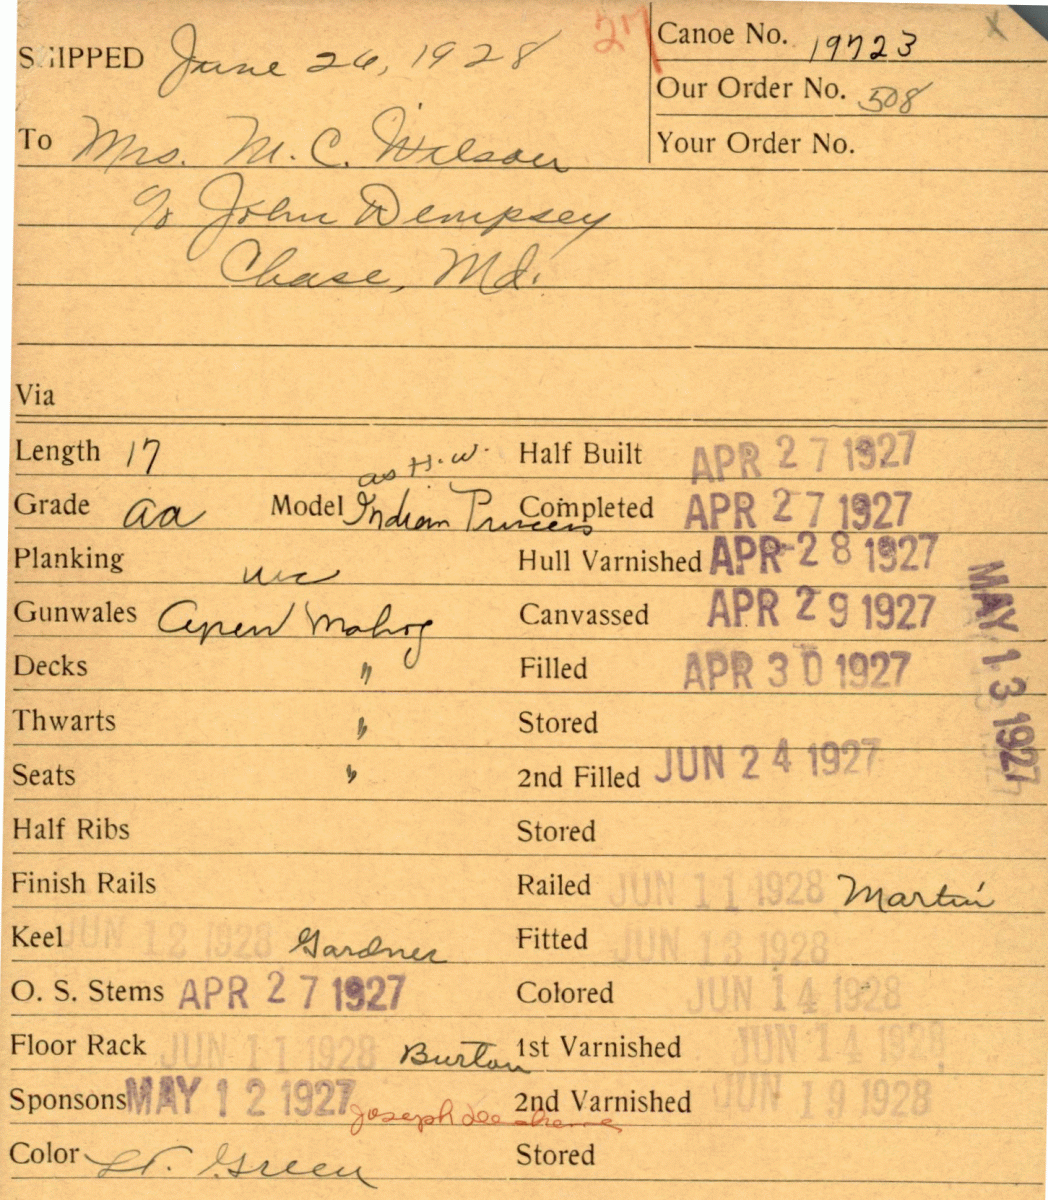 SHIPPED June 26, 1928 27 Canoe No. 19723 X
Our Order No. 508
To Mrs. M. C. Wilson Your Order No.
c/o John Dempsey
Chase, Md.
Via
Length 17 Half Built APR 27 1927
as H. W.
Grade aa Model Indian Princess Completed APR 27 1927
Planking wc Hull Varnished APR 28 1927
Gunwales Open Mahog Canvassed APR 29 1927
MAY 13 1927
Decks " Filled APR 30 1927
Thwarts " Stored
Seats " 2nd Filled JUN 24 1927
Half Ribs Stored
Finish Rails Railed JUN 11 1928 Martin
Keel JUN 12 1928 Gardner Fitted JUN 13 1928
O. S. Stems APR 27 1927 Colored JUN 14 1928
Floor Rack JUN 11 1928 Burton 1st Varnished JUN 14 1928
Sponsons MAY 12 1927 Joseph 2nd Varnished JUN 19 1928
Color Lt. Green Stored